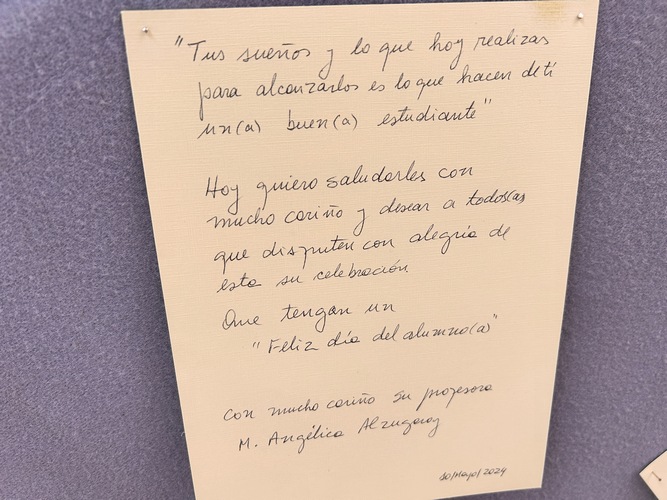 "Tus sueños y lo que hoy realizas
para alcanzarlos es lo que hacen de ti
un(a) buen(a) estudiante"
Hoy quiero saludarles con
mucho cariño y desear a todos(as
que disfruten con alegría de
esta su celebración
Que tengan un
"Feliz día del alumno(a)"
con mucho cariño su profesora
M. Angélica Alzugaray
10/Mayo/2024